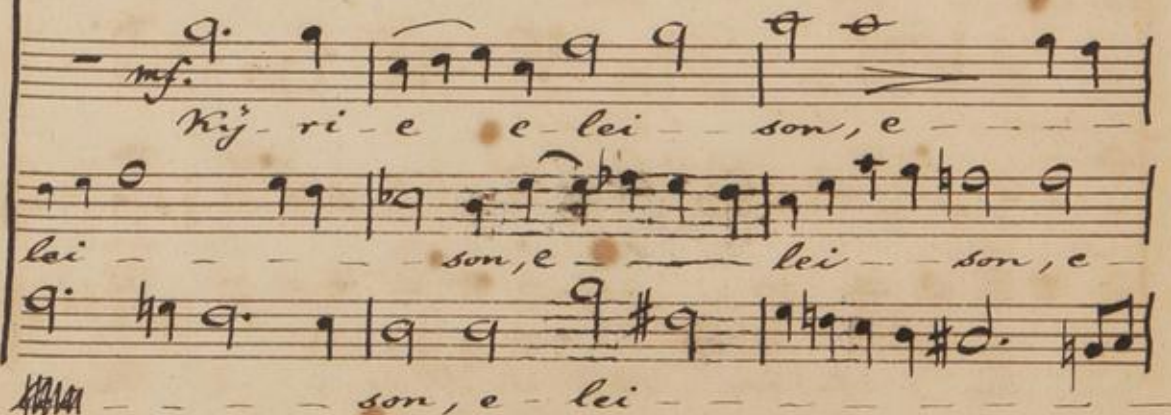 mf.
Kÿ - ri - e e - lei - - son, e - - - - -
lei - - - - - son, e - - - lei - - son, e -
- - - - son, e - lei - - - - - - - -